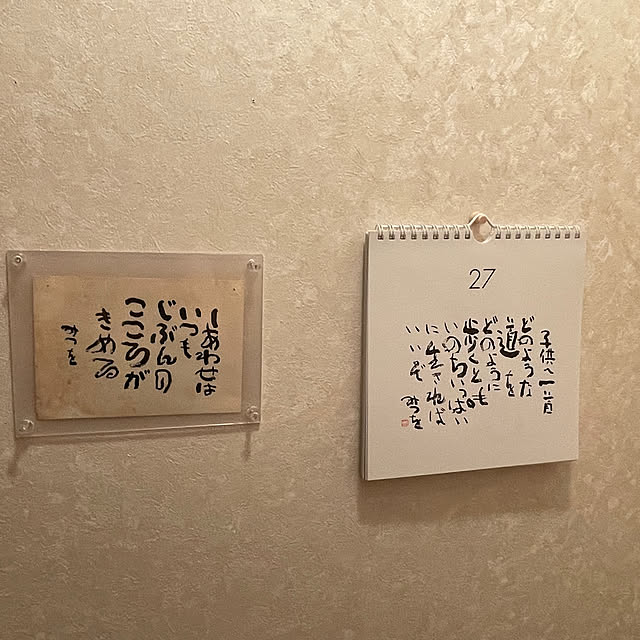 しあわせは
いつも
じぶんの
こころが
きめる
みつを
27
子供へ一首
どのような
道を
どのように
歩くとも
いのちいっぱい
に生きれば
いいぞ
みつを